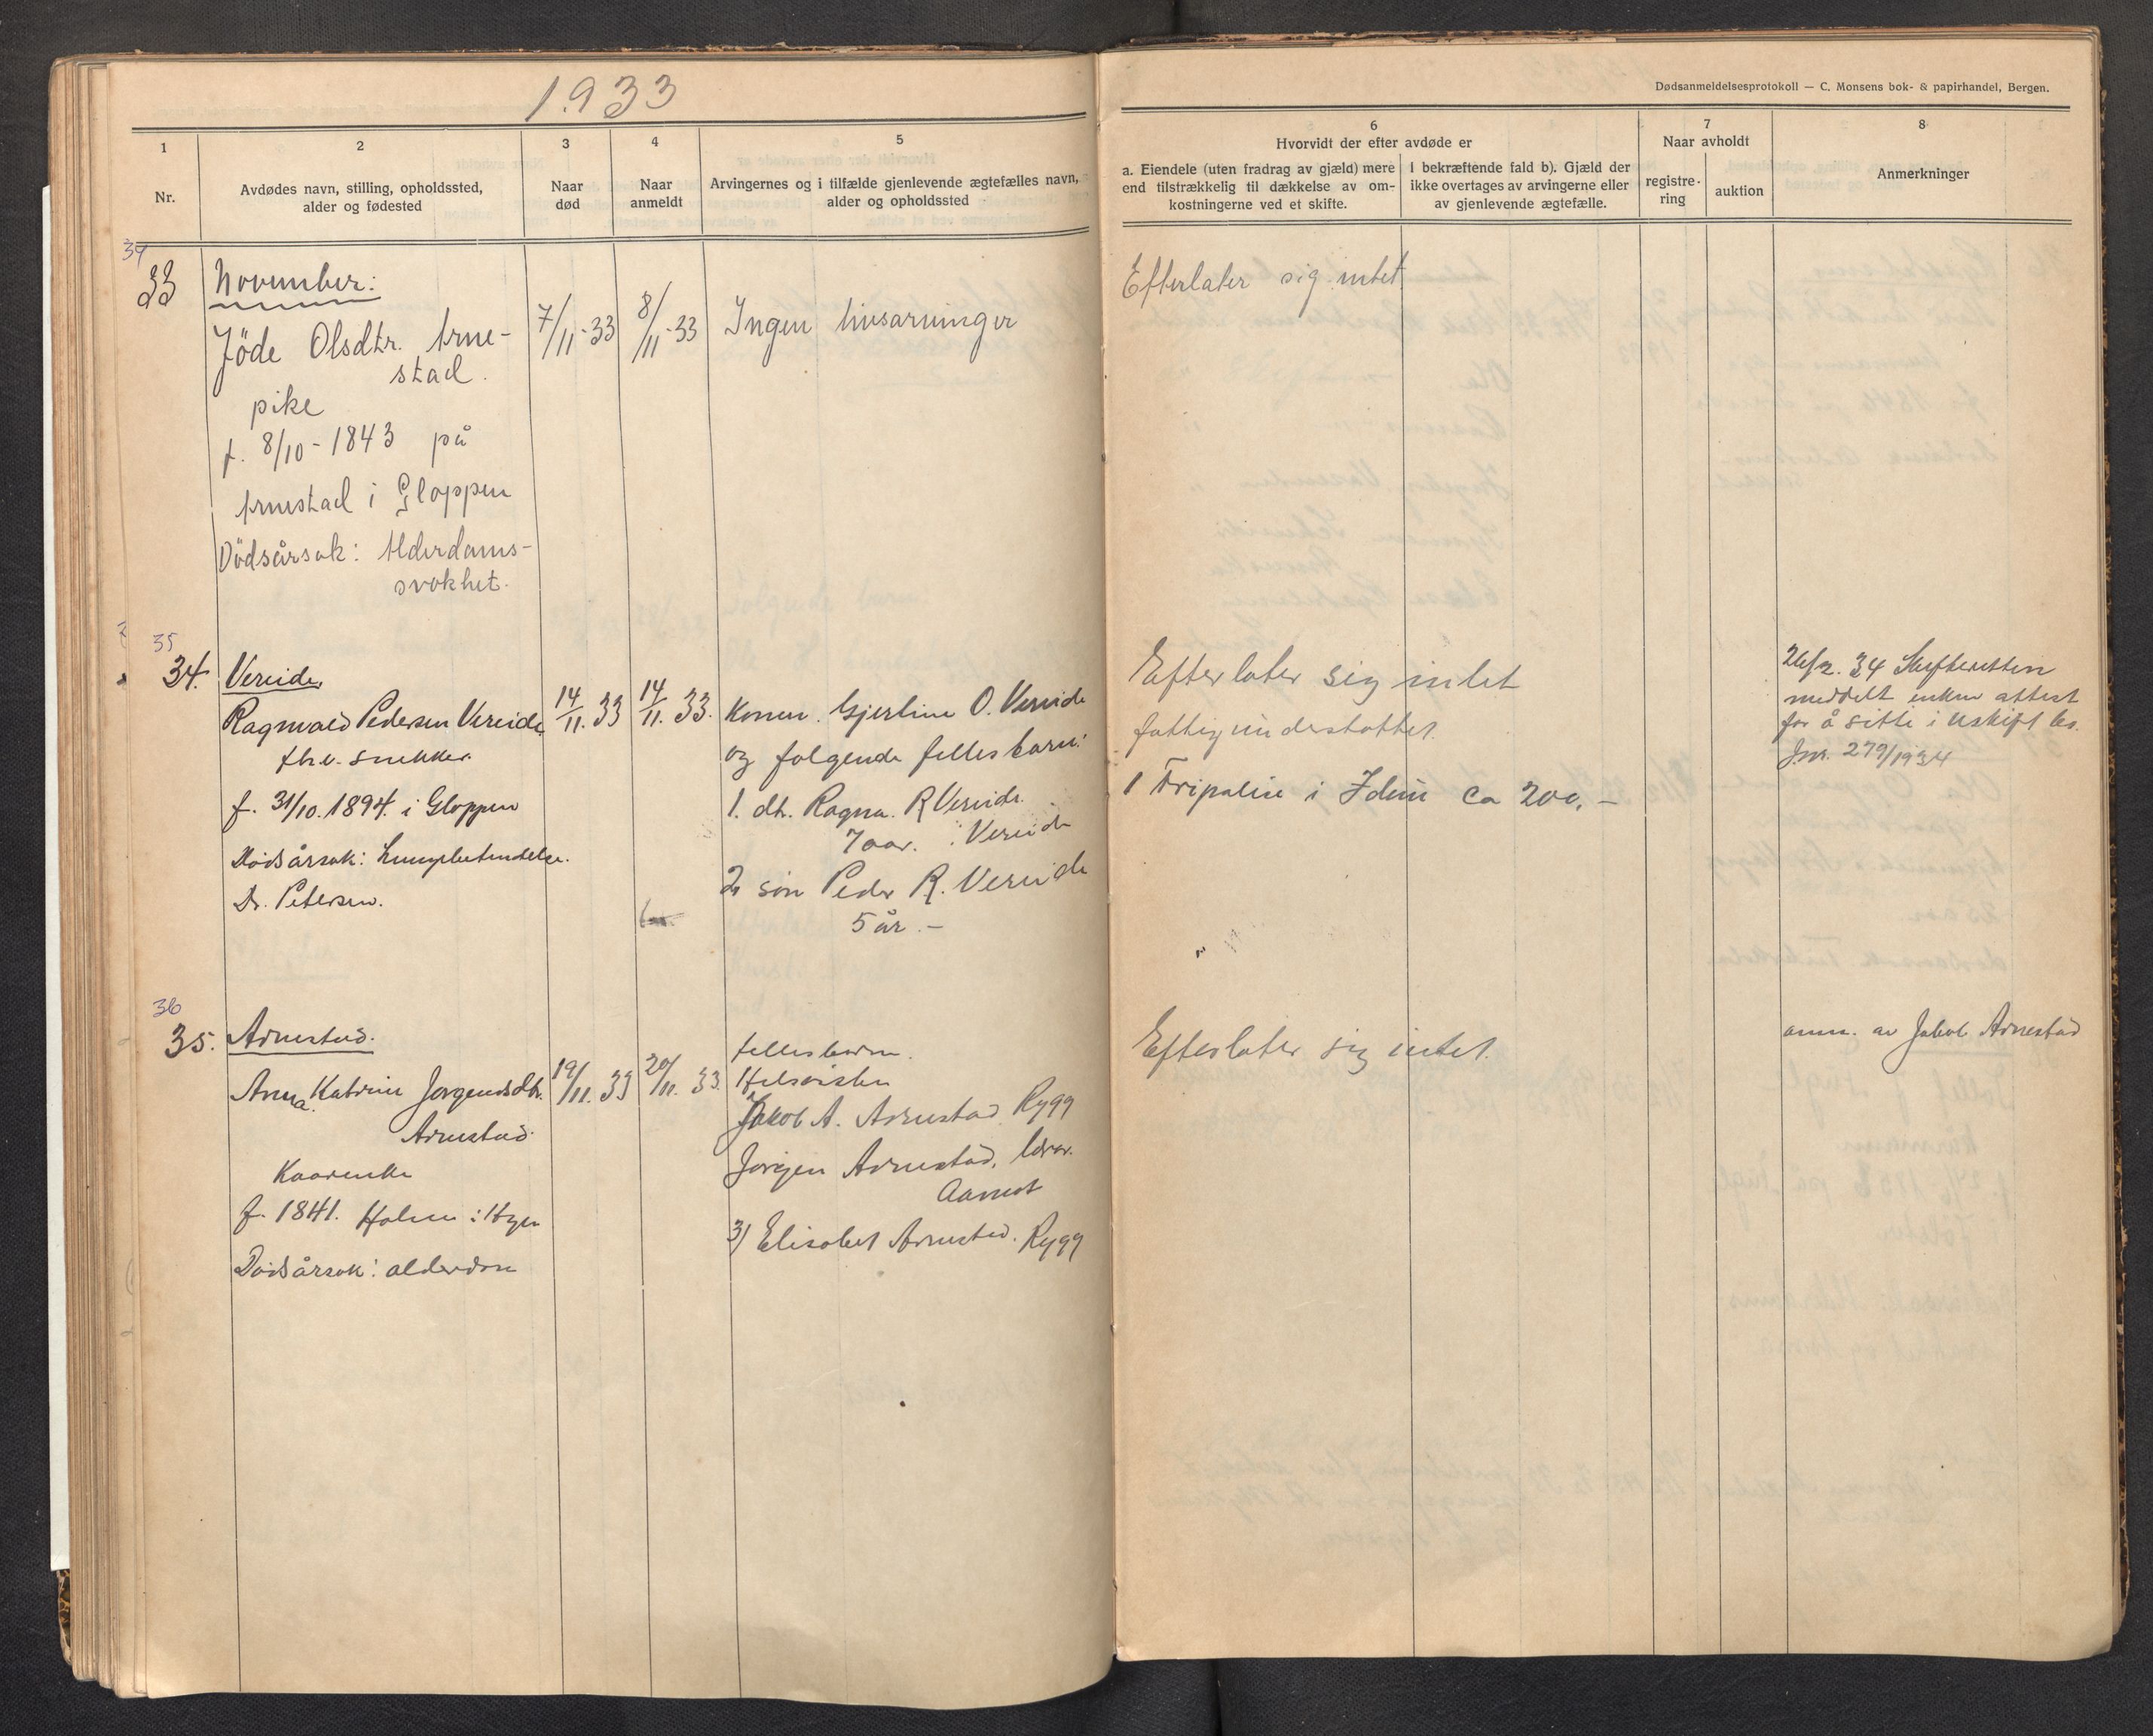 1933
Dødsanmeldelsesprotokoll — C. Monsens bok- & papirhandel, Bergen.
1
Nr.
2
Avdødes navn, stilling, opholdssted,
alder og fødested
3
Naar
død
4
Naar
anmeldt
5
Arvingernes og i tilfælde gjenlevende ægtefælles navn,
alder og opholdssted
6
Hvorvidt der efter avdøde er
a. Eiendele (uten fradrag av gjæld) mere
end tilstrækkelig til dækkelse av om-
kostningerne ved et skifte.
I bekræftende fald b). Gjæld der
ikke overtages av arvingerne eller
av gjenlevende ægtefælle.
7
Naar avholdt
registre-
ring
auktion
8
Anmerkninger
34
33
November:
Jöde Olsdtr. Arne-
stad.
pike
f. 8/10 - 1843 på
Arnestad i Gloppen
Dödsårsak: Alderdoms-
svakhet.
7/11-33
8/11-33
Ingen livsarvinger
Efterlater sig intet
35
34.
Vereide
Ragnvald Pedersen Vereide
fhv. snekker.
f. 31/10. 1894. i Gloppen
Dødsårsak: Lungebetendelse.
Dr. Petersen.
14/11. 33
14/11. 33.
Konen. Gjertine O. Vereide
og følgende felles barn:
1. dtr. Ragna. R Vereide.
7 aar. Vereide
2 søn Peder R. Vereide
5 år. -
Efterlater sig intet
fattigunderstøttet.
1 Fripolise i Idun ca 200,-
26/2. 34 Skifteretten
meddelt enken attest
for å sitte i uskift bo.
Jnr. 279/1934
36
35.
Arnestad.
Anna Katrine Jørgensdtr.
Arnestad.
Kaarenke
f. 1841. Holme i Hyen
Dødsårsak: alderdom
19/11. 33
20/11. 33.
felles barn.
Helsøsken
Jakob A. Arnestad Rygg
Jørgen Arnestad, lærer.
Aamot
3) Elisabet Arnestad. Rygg
Efterlater sig intet.
anm. av Jakob Arnestad